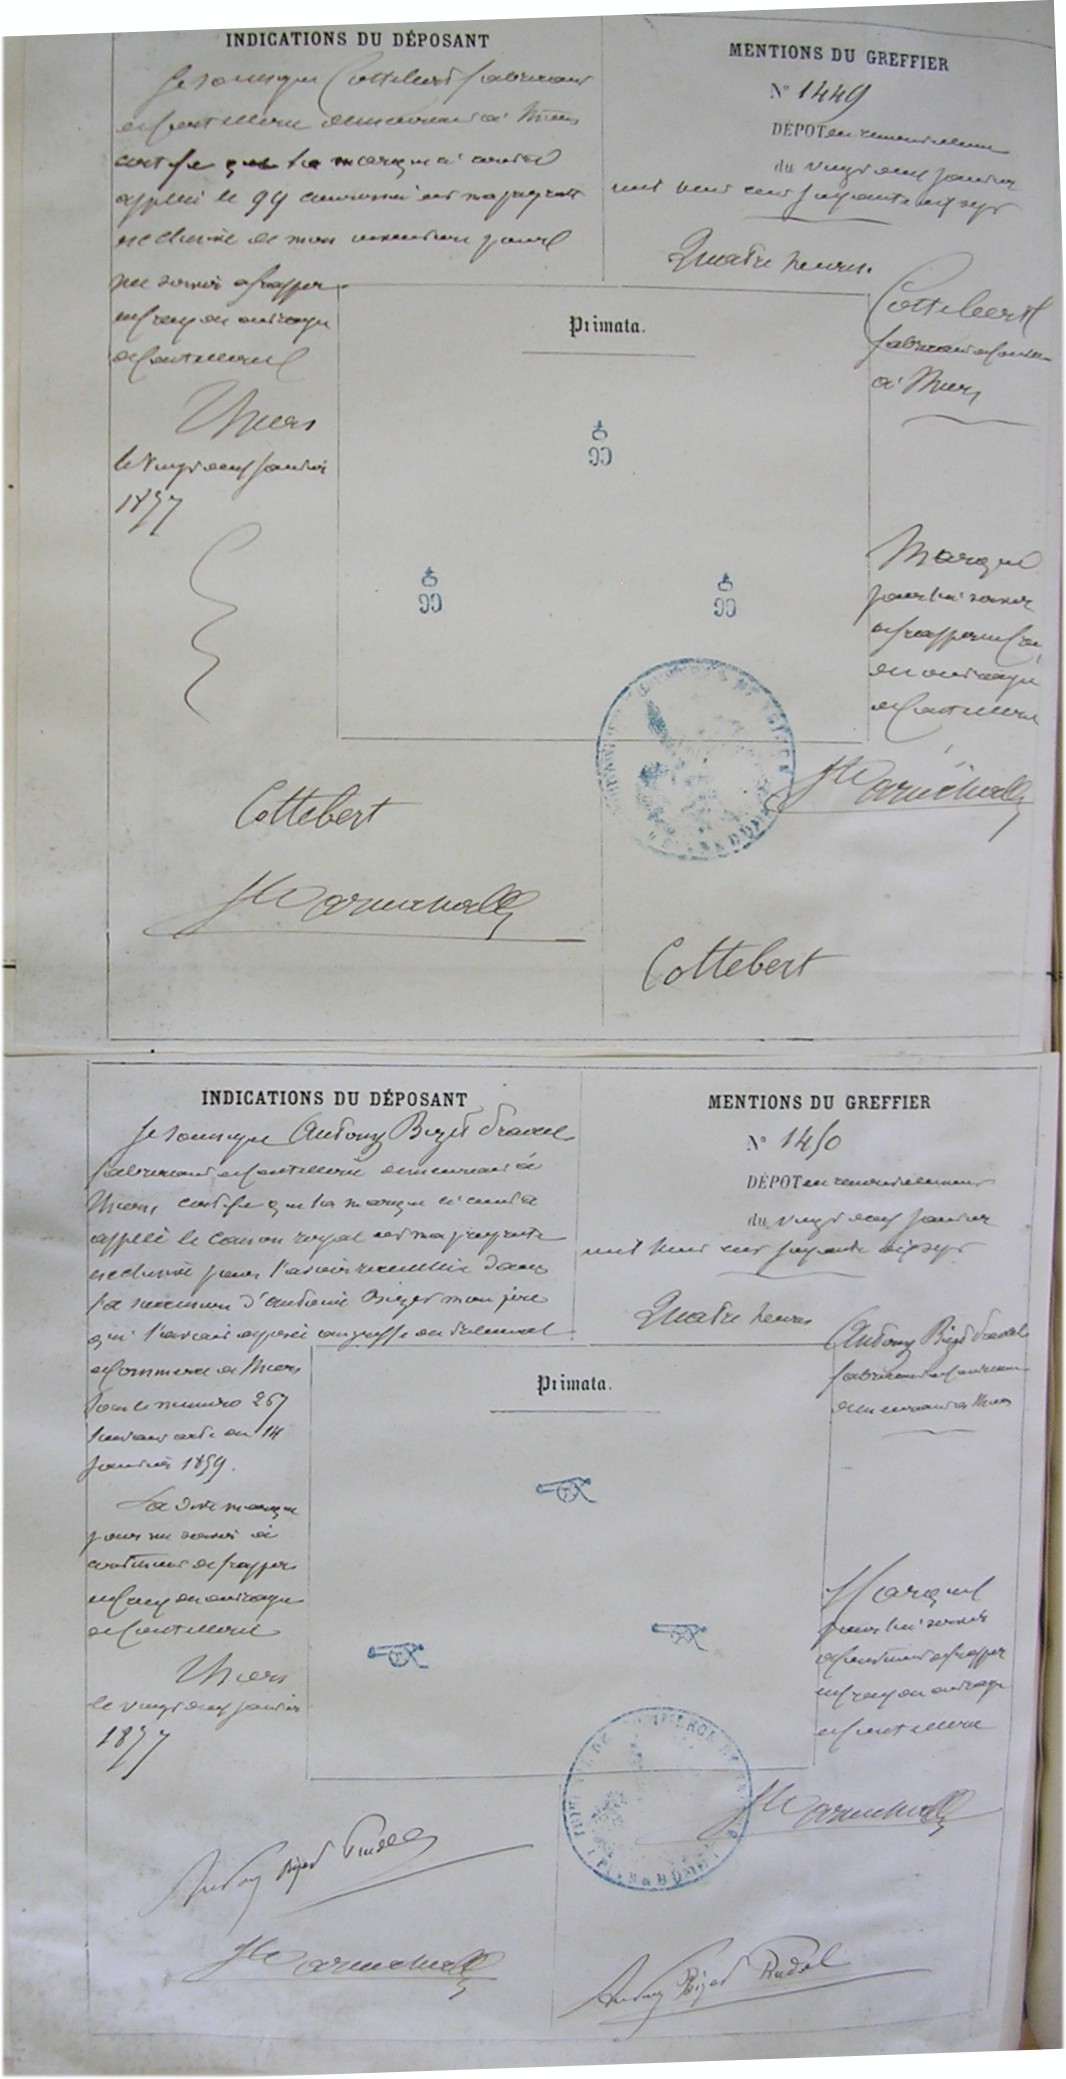 INDICATIONS DU DÉPOSANT
Je soussigné Cottebert fabricant
de coutellerie demeurant à Thiers
certifie que la marque ci contre
appelée le 99 couronné est ma propriété
exclusive de mon invention pour
me servir à frapper
mes ouvrages
de coutellerie
Thiers
le vingt neuf janvier
1877
Cottebert
MENTIONS DU GREFFIER
N° 1449
DÉPOT en renouvellement
du vingt neuf janvier
mil huit cent soixante dix sept
Quatre heures.
Cottebert
fabricant de
à Thiers
Primata.
99
99
99
Marque
pour lui servir
à frapper
ouvrages
de coutellerie
Cottebert
INDICATIONS DU DÉPOSANT
Je soussigné Antony Bizet
fabricant de coutellerie demeurant à
Thiers, certifie que la marque ci contre
appelée le canon royal est ma propriété
exclusive pour l'avoir recueillie dans
la succession d'Antoine Bizet mon père
qui l'avait déposée au greffe du tribunal
de commerce de Thiers
sous le numéro 267
suivant acte du 14
janvier 1859.
La dite marque
pour me servir à
continuer de frapper
ouvrages
de coutellerie
Thiers
le vingt neuf janvier
1877
Antony Bizet
MENTIONS DU GREFFIER
N° 1450
DÉPOT en renouvellement
du vingt neuf janvier
mil huit cent soixante dix sept
Quatre heures
Antony Bizet
fabricant de
demeurant à Thiers
Primata.
Marque
pour lui servir
à continuer de frapper
ouvrages
de coutellerie
Antony Bizet